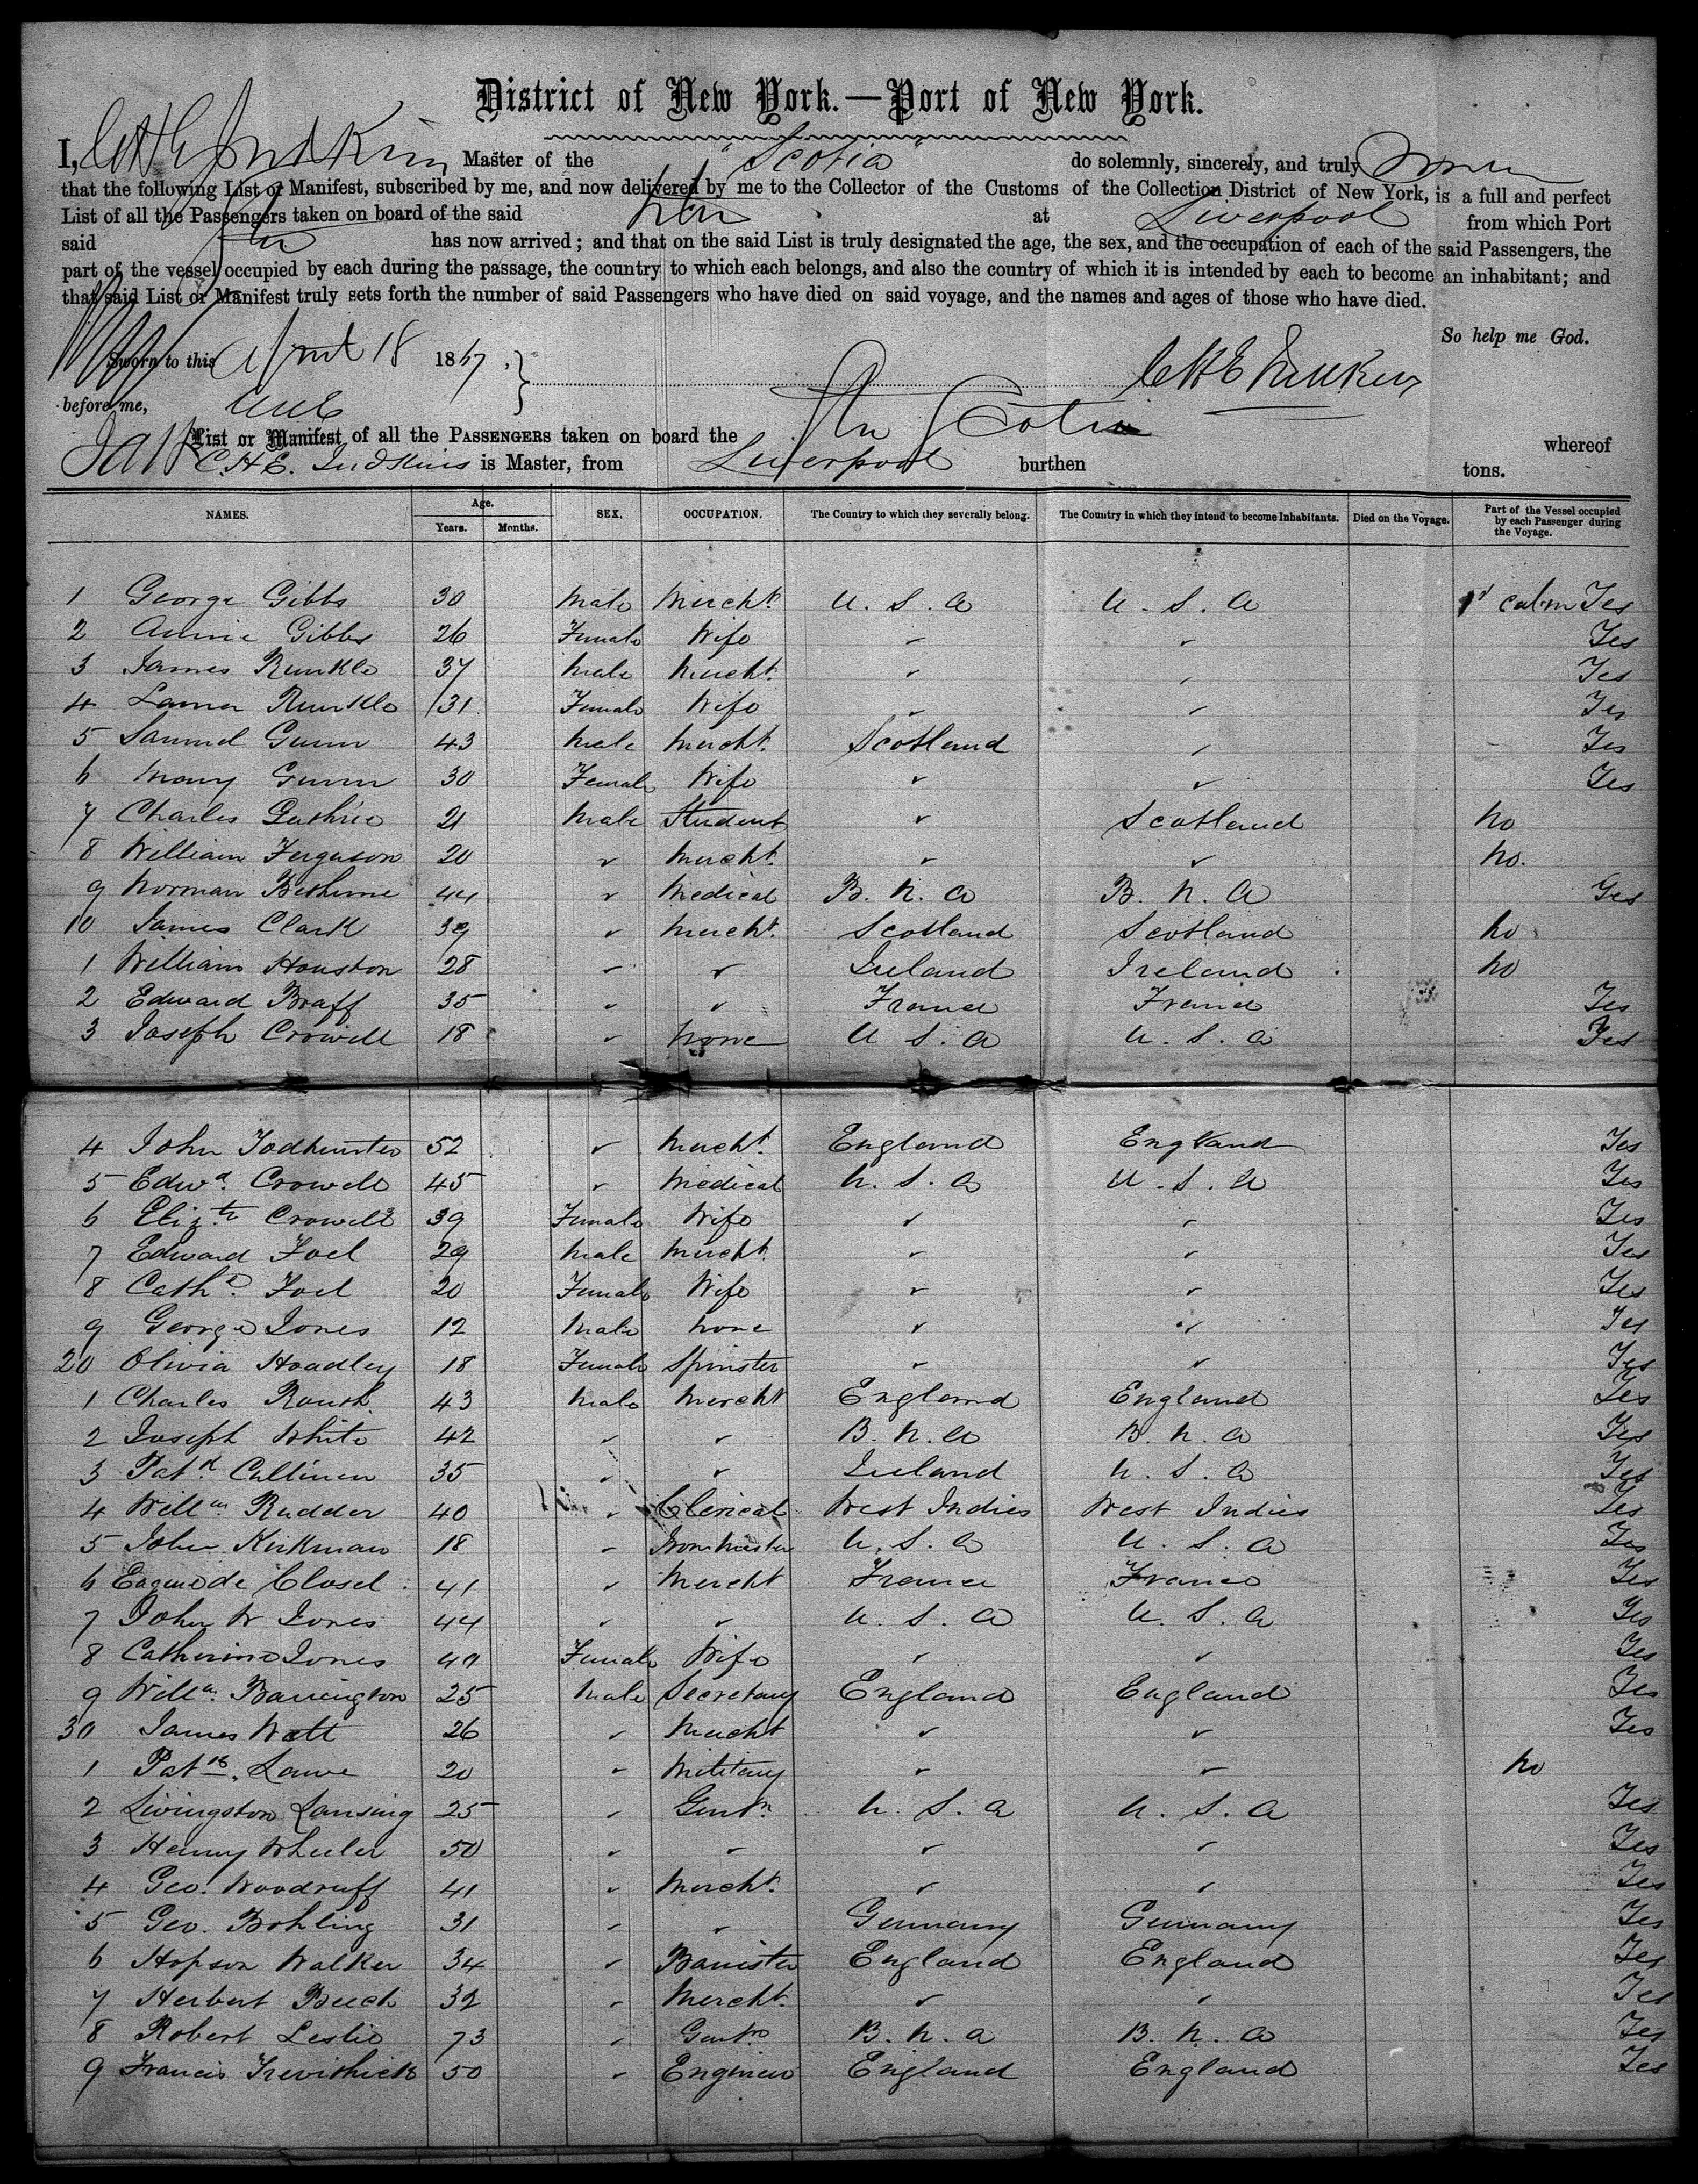 District of New York.—Port of New York.
I, C H E Judkins Master of the "Scotia" do solemnly, sincerely, and truly swear
that the following List or Manifest, subscribed by me, and now delivered by me to the Collector of the Customs of the Collection District of New York, is a full and perfect
List of all the Passengers taken on board of the said at Liverpool from which Port
said has now arrived; and that on the said List is truly designated the age, the sex, and the occupation of each of the said Passengers, the
part of the vessel occupied by each during the passage, the country to which each belongs, and also the country of which it is intended by each to become an inhabitant; and
that said List or Manifest truly sets forth the number of said Passengers who have died on said voyage, and the names and ages of those who have died.
So help me God.
Sworn to this April 18 1867, C H E Judkins
before me,
List or Manifest of all the PASSENGERS taken on board the Scotia whereof
C. H. E. Judkins is Master, from Liverpool burthen tons.
NAMES. Age. Years. Months. SEX. OCCUPATION. The Country to which they severally belong. The Country in which they intend to become Inhabitants. Died on the Voyage. Part of the Vessel occupied by each Passenger during the Voyage.
1 George Gibbs 30 Male Mercht. U. S. A U. S. A Yes
2 Annie Gibbs 26 Female Wife ✓ ✓ Yes
3 James Runkle 37 Male Mercht. ✓ ✓ Yes
4 Runkle 31 Female Wife ✓ ✓ Yes
5 Samuel Gunn 43 Male Mercht. Scotland ✓ Yes
6 Mary Gunn 30 Female Wife ✓ ✓ Yes
7 Charles Guthrie 21 Male Student ✓ Scotland No
8 William Ferguson 20 ✓ Mercht. ✓ ✓ No.
9 Norman Bethune 44 ✓ Medical B. N. A B. N. A Yes
10 James Clark 39 ✓ Mercht. Scotland Scotland No
1 William Houston 28 ✓ ✓ Ireland Ireland No
2 Edward Braff 35 ✓ ✓ France France Yes
3 Joseph Crowell 18 ✓ None U. S. A U. S. A Yes
4 John Todhunter 52 ✓ Mercht. England England Yes
5 Edwd. Crowell 45 ✓ Medical U. S. A U. S. A Yes
6 Elizth Crowell 39 Female Wife ✓ ✓ Yes
7 Edward Joel 29 Male Mercht ✓ ✓ Yes
8 Cathe. Joel 20 Female Wife ✓ ✓ Yes
9 George Jones 12 Male None ✓ ✓ Yes
20 Olivia Hoadley 18 Female Spinster ✓ ✓ Yes
1 Charles Routh. 43 Male Mercht England England Yes
2 Joseph White 42 ✓ ✓ B. N. A B. N. A Yes
3 Patk. Cullinen 35 ✓ ✓ Ireland U. S. A Yes
4 Willm. Rudder 40 ✓ Clerical West Indies West Indies Yes
5 John Kirkman 18 ✓ Iron Master U. S. A U. S. A Yes
6 de Closel 41 ✓ Mercht France France Yes
7 John W Jones 44 ✓ ✓ U. S. A U. S. A Yes
8 Catherine Jones 40 Female Wife ✓ ✓ Yes
9 Willm. Barrington 25 Male Secretary England England Yes
30 James Watt 26 ✓ Mercht ✓ ✓ Yes
1 Patk. 20 ✓ Military ✓ ✓ No
2 Livingston Lansing 25 ✓ Gentn. U. S. A U. S. A Yes
3 Henry Wheeler 50 ✓ ✓ ✓ ✓ Yes
4 Geo. Woodruff 41 ✓ Mercht. ✓ ✓ Yes
5 Geo. Bohling 31 ✓ ✓ Germany Germany Yes
6 Hopson Walker 34 ✓ Barrister England England Yes
7 Herbert Beech 32 ✓ Mercht. ✓ ✓ Yes
8 Robert Leslie 73 ✓ Gentn B. N. A B. N. A Yes
9 Francis Trevithick 50 ✓ Engineer England England Yes